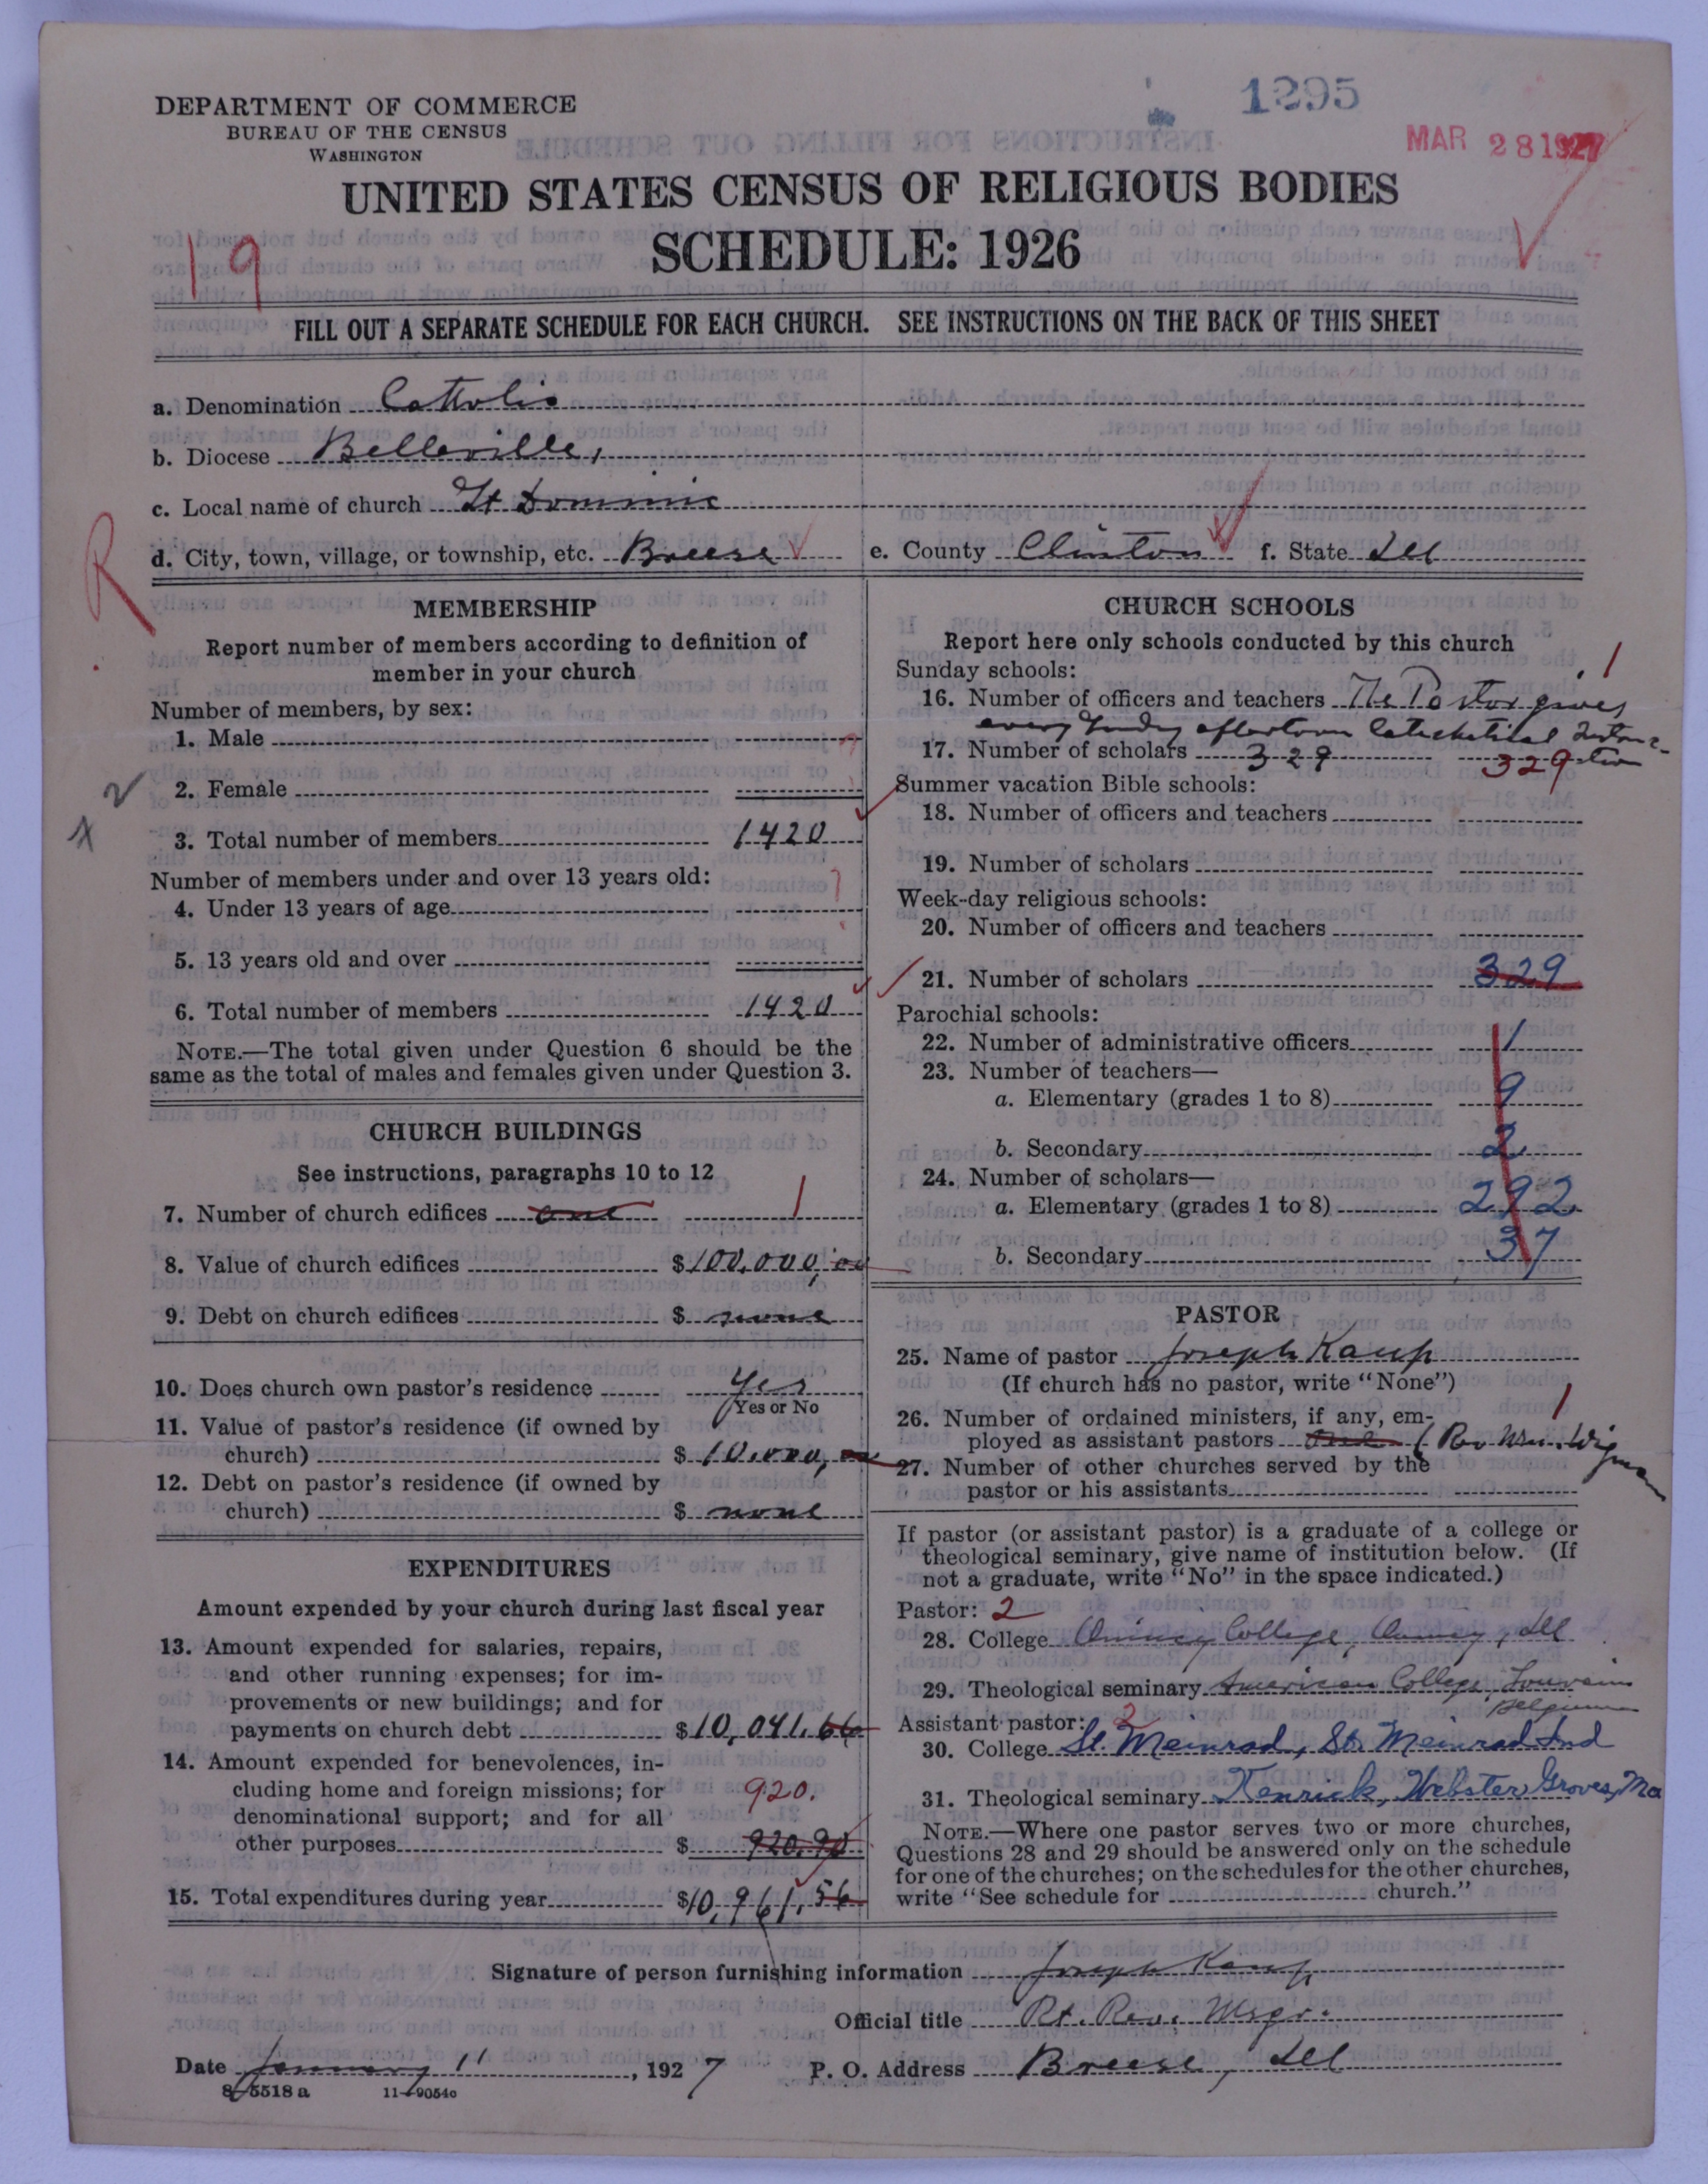 1295
DEPARTMENT OF COMMERCE
BUREAU OF THE CENSUS
WASHINGTON
MAR 28 1927
UNITED STATES CENSUS OF RELIGIOUS BODIES
SCHEDULE: 1926
19
FILL OUT A SEPARATE SCHEDULE FOR EACH CHURCH. SEE INSTRUCTIONS ON THE BACK OF THIS SHEET
a. Denomination Catholic
b. Diocese Belleville,
c. Local name of church St Dominic
d. City, town, village, or township, etc. Breese e. County Clinton f. State Ill
R
MEMBERSHIP
Report number of members according to definition of
member in your church
Number of members, by sex:
1. Male
2. Female
3. Total number of members 1420
Number of members under and over 13 years old:
4. Under 13 years of age
5. 13 years old and over
6. Total number of members 1420
NOTE.—The total given under Question 6 should be the
same as the total of males and females given under Question 3.
CHURCH BUILDINGS
See instructions, paragraphs 10 to 12
7. Number of church edifices one 1
8. Value of church edifices $100,000,00
9. Debt on church edifices $ none
10. Does church own pastor's residence Yes
Yes or No
11. Value of pastor's residence (if owned by
church) $ 10,000,00
12. Debt on pastor's residence (if owned by
church) $ none
EXPENDITURES
Amount expended by your church during last fiscal year
13. Amount expended for salaries, repairs,
and other running expenses; for im-
provements or new buildings; and for
payments on church debt $10,041.66
14. Amount expended for benevolences, in-
cluding home and foreign missions; for 920.
denominational support; and for all
other purposes $ 920.90
15. Total expenditures during year $10,961.56
CHURCH SCHOOLS
Report here only schools conducted by this church
Sunday schools: 1
16. Number of officers and teachers The Pastor gives
every Sunday afternoon Catechetical Instruc-
17. Number of scholars 329 329 tion
Summer vacation Bible schools:
18. Number of officers and teachers
19. Number of scholars
Week-day religious schools:
20. Number of officers and teachers
21. Number of scholars 329
Parochial schools:
22. Number of administrative officers 1
23. Number of teachers—
a. Elementary (grades 1 to 8) 9
b. Secondary 2
24. Number of scholars—
a. Elementary (grades 1 to 8) 292
b. Secondary 37
PASTOR
25. Name of pastor Joseph Kaup
(If church has no pastor, write "None")
26. Number of ordained ministers, if any, em- 1
ployed as assistant pastors one (Rev Wm. Wigman
27. Number of other churches served by the
pastor or his assistants
If pastor (or assistant pastor) is a graduate of a college or
theological seminary, give name of institution below. (If
not a graduate, write "No" in the space indicated.)
Pastor: 2
28. College Quincy College, Quincy, Ill
29. Theological seminary American College, Louvain
Belgium
Assistant pastor: 2
30. College St. Meinrad, St. Meinrad Ind
31. Theological seminary Kenrick, Webster Groves, Mo
NOTE.—Where one pastor serves two or more churches,
Questions 28 and 29 should be answered only on the schedule
for one of the churches; on the schedules for the other churches,
write "See schedule for church."
Signature of person furnishing information Joseph Kaup
Official title Rt. Rev. Msgr.
Date January 11, 1927 P. O. Address Breese, Ill
8-5518 a 11-9054c